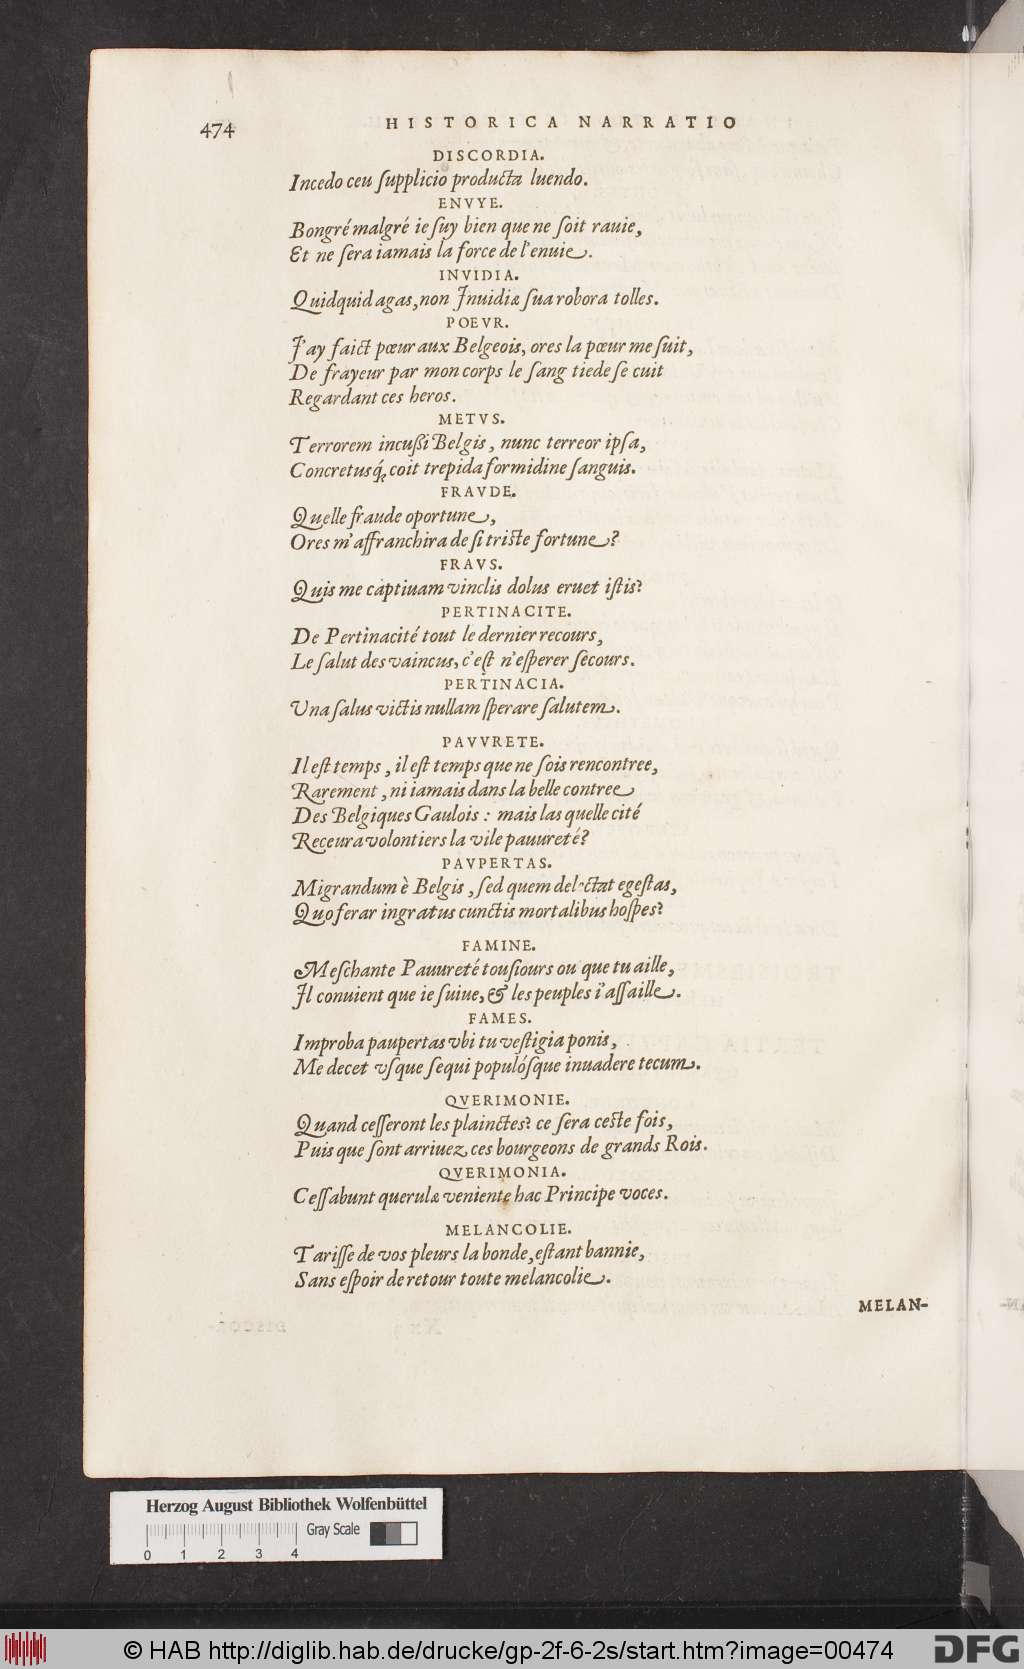 474
HISTORICA NARRATIO
DISCORDIA.
Incedo ceu ſupplicio producta luendo.
ENVYE.
Bongré malgré ie ſuy bien que ne ſoit rauie,
Et ne ſera iamais la force de l'enuie.
INVIDIA.
Quidquid agas, non Inuidiæ ſua robora tolles.
POEVR.
J'ay faict pœur aux Belgeois, ores la pœur me ſuit,
De frayeur par mon corps le ſang tiede ſe cuit
Regardant ces heros.
METVS.
Terrorem incußi Belgis, nunc terreor ipſa,
Concretusq́; coit trepida formidine ſanguis.
FRAVDE.
Quelle fraude oportune,
Ores m'affranchira de ſi triſte fortune?
FRAVS.
Quis me captiuam vinclis dolus eruet iſtis?
PERTINACITE.
De Pertinacité tout le dernier recours,
Le ſalut des vaincus, c'eſt n'eſperer ſecours.
PERTINACIA.
Vna ſalus victis nullam ſperare ſalutem.
PAVVRETE.
Il eſt temps, il eſt temps que ne ſois rencontree,
Rarement, ni iamais dans la belle contree
Des Belgiques Gaulois : mais las quelle cité
Receura volontiers la vile pauureté?
PAVPERTAS.
Migrandum è Belgis, ſed quem delectat egeſtas,
Quo ferar ingratus cunctis mortalibus hoſpes?
FAMINE.
Meſchante Pauureté touſiours ou que tu aille,
Il conuient que ie ſuiue, & les peuples i'aſſaille.
FAMES.
Improba paupertas vbi tu veſtigia ponis,
Me decet vſque ſequi populóſque inuadere tecum.
QVERIMONIE.
Quand ceſſeront les plainctes? ce ſera ceſte fois,
Puis que ſont arriuez ces bourgeons de grands Rois.
QVERIMONIA.
Ceſſabunt querulæ veniente hac Principe voces.
MELANCOLIE.
Tariſſe de vos pleurs la bonde, eſtant bannie,
Sans eſpoir de retour toute melancolie.
MELAN-
Herzog August Bibliothek Wolfenbüttel
Gray Scale
0 1 2 3 4
© HAB http://diglib.hab.de/drucke/gp-2f-6-2s/start.htm?image=00474
DFG